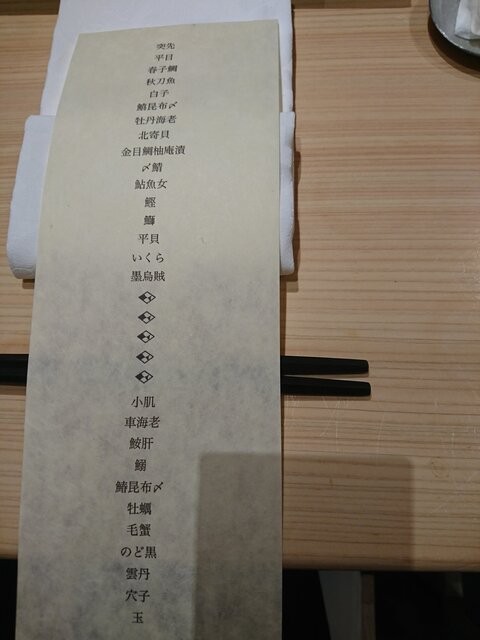 突先
平目
春子鯛
秋刀魚
白子
鰆昆布〆
牡丹海老
北寄貝
金目鯛柚庵漬
〆鯖
鮎魚女
鰹
鰤
平貝
いくら
墨烏賊
小肌
車海老
鮟肝
鰯
鰆昆布〆
牡蠣
毛蟹
のど黒
雲丹
穴子
玉